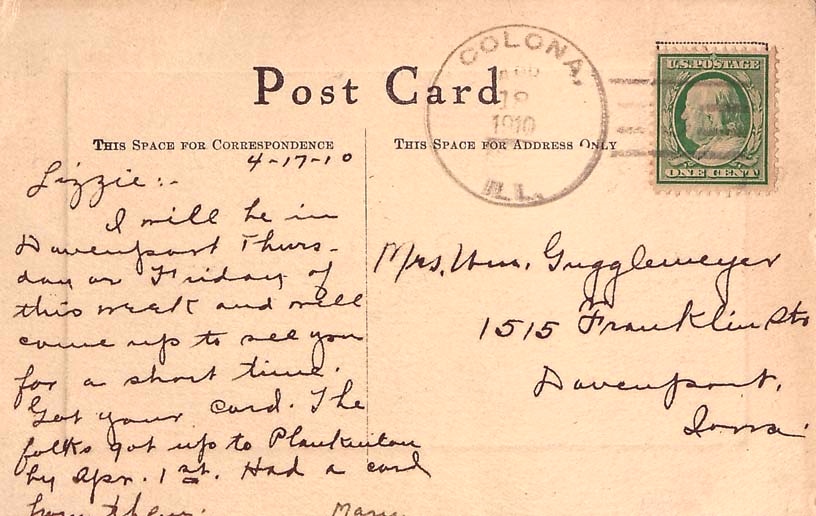 Post Card
COLONA,
APR
18
1910
ILL.
U.S. POSTAGE
ONE CENT
THIS SPACE FOR CORRESPONDENCE
4-17-10
Lizzie:-
I will be in
Davenport Thurs-
day or Friday of
this week and will
come up to see you
for a short time.
Got your card. The
folks got up to Plankinton
by Apr. 1st. Had a card
from them.
Mary
THIS SPACE FOR ADDRESS ONLY
Mrs. Wm. Gugglemeyer
1515 Franklin St.
Davenport,
Iowa.